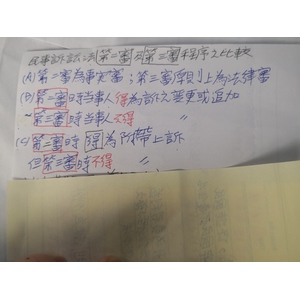 民事訴訟法第二審和第三審程序之比較
(A)第二審為事實審；第三審原則上為法律審
(B)第二審時當事人得為訴之變更或追加
~第三審時當事人不得 〃
(C)第二審時得為附帶上訴
但第三審時不得 〃